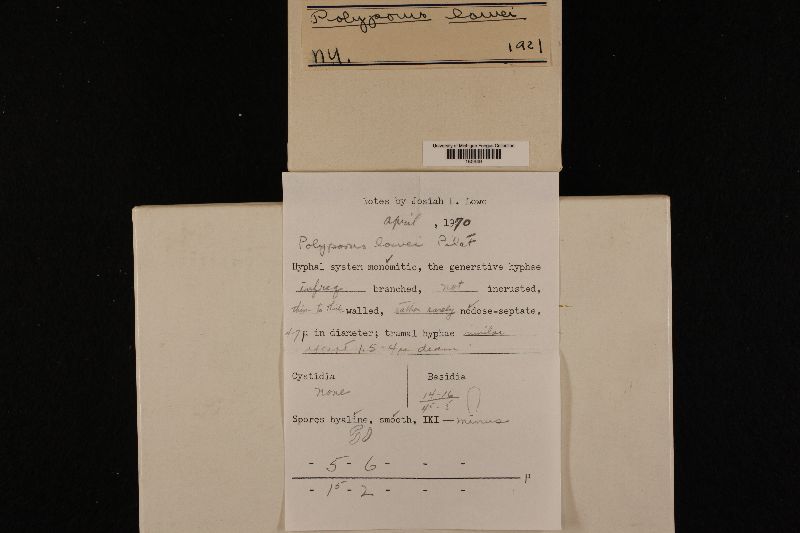 Polyporus lowei
NY. 1921
University of Michigan Fungus Collection
Notes by Josiah L. Lowe
April , 1970
Polyporus lowei Pilat
Hyphal system monomitic, the generative hyphae
infreq branched, not incrusted,
thin- to thick walled, rather rarely nodose-septate,
4-7 µ in diameter; tramal hyphae similar
except 1.5-4µ diam
Cystidia Basidia
none 14-16
4-5
Spores hyaline, smooth, IKI — minus
- 5 - 6 - - - µ
- 1.5 - 2 - - -